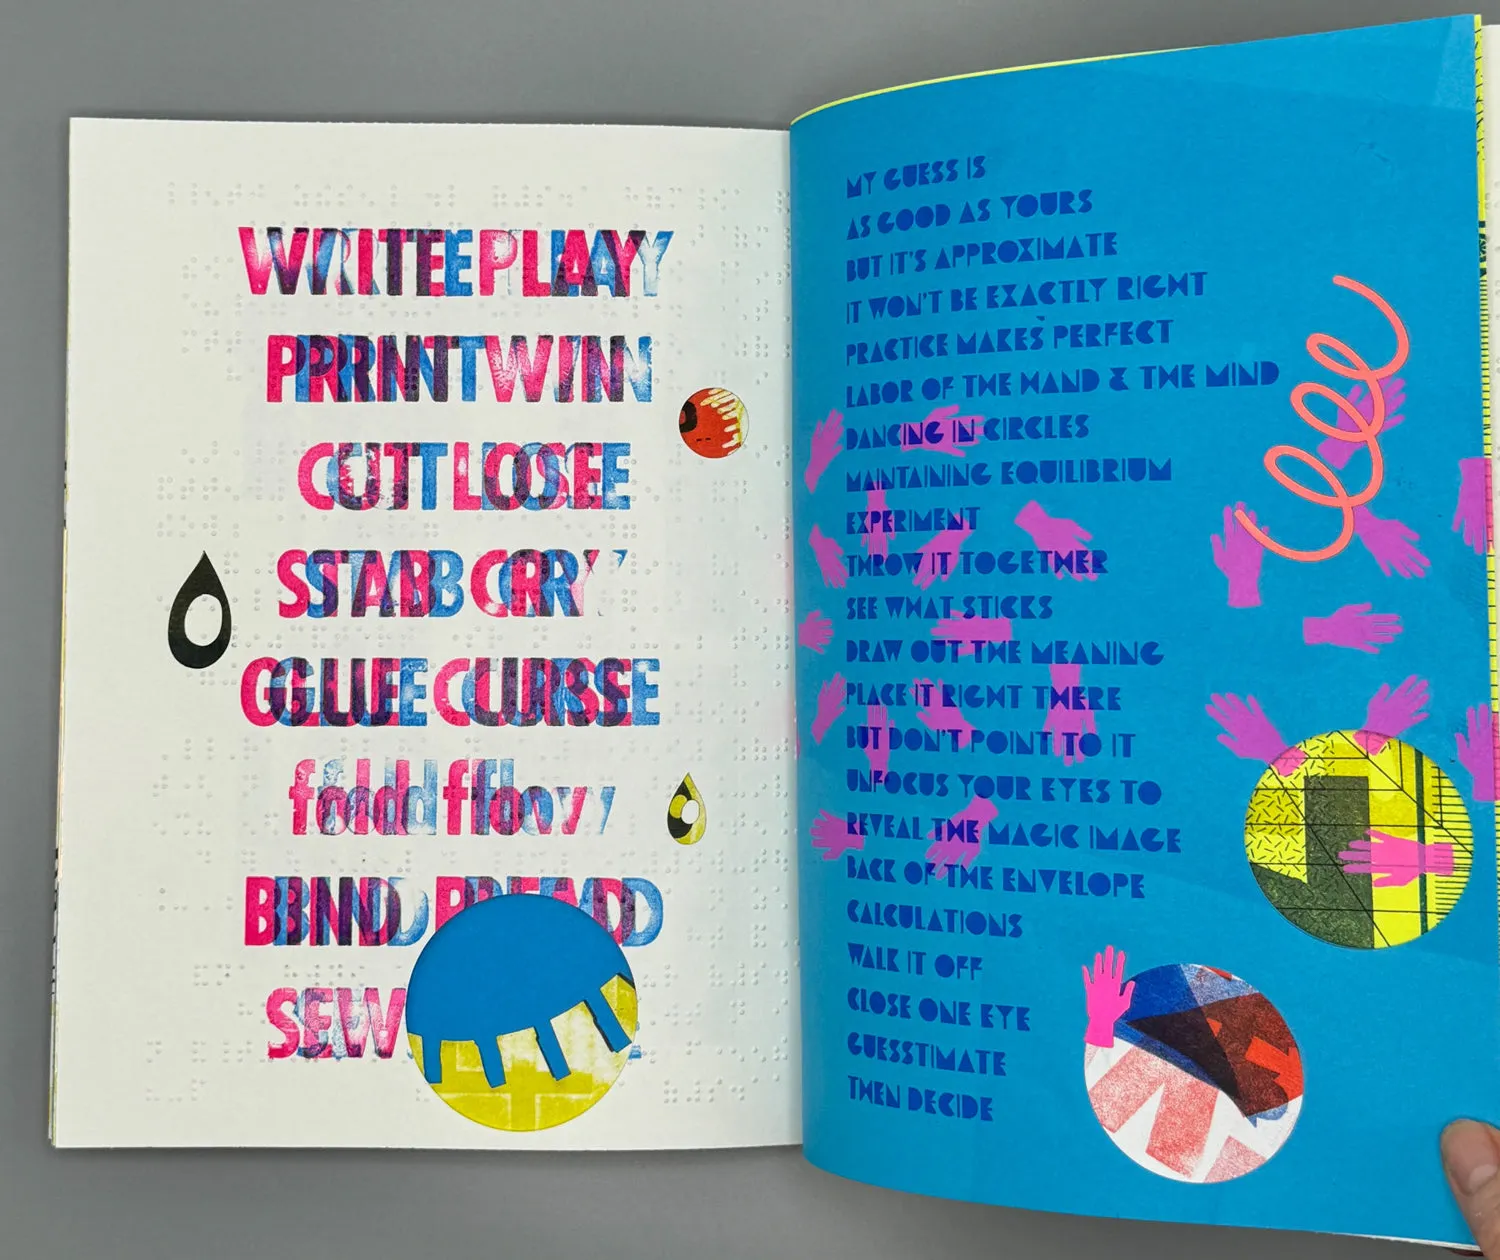 WRITE PLAY
PRINT WIN
CUT LOSE
STAB CRY
GLUE CURSE
fold flow
BIND READ
SEW
MY GUESS IS
AS GOOD AS YOURS
BUT IT'S APPROXIMATE
IT WON'T BE EXACTLY RIGHT
PRACTICE MAKES PERFECT
LABOR OF THE HAND & THE MIND
DANCING IN CIRCLES
MAINTAINING EQUILIBRIUM
EXPERIMENT
THROW IT TOGETHER
SEE WHAT STICKS
DRAW OUT THE MEANING
PLACE IT RIGHT THERE
BUT DON'T POINT TO IT
UNFOCUS YOUR EYES TO
REVEAL THE MAGIC IMAGE
BACK OF THE ENVELOPE
CALCULATIONS
WALK IT OFF
CLOSE ONE EYE
GUESSTIMATE
THEN DECIDE